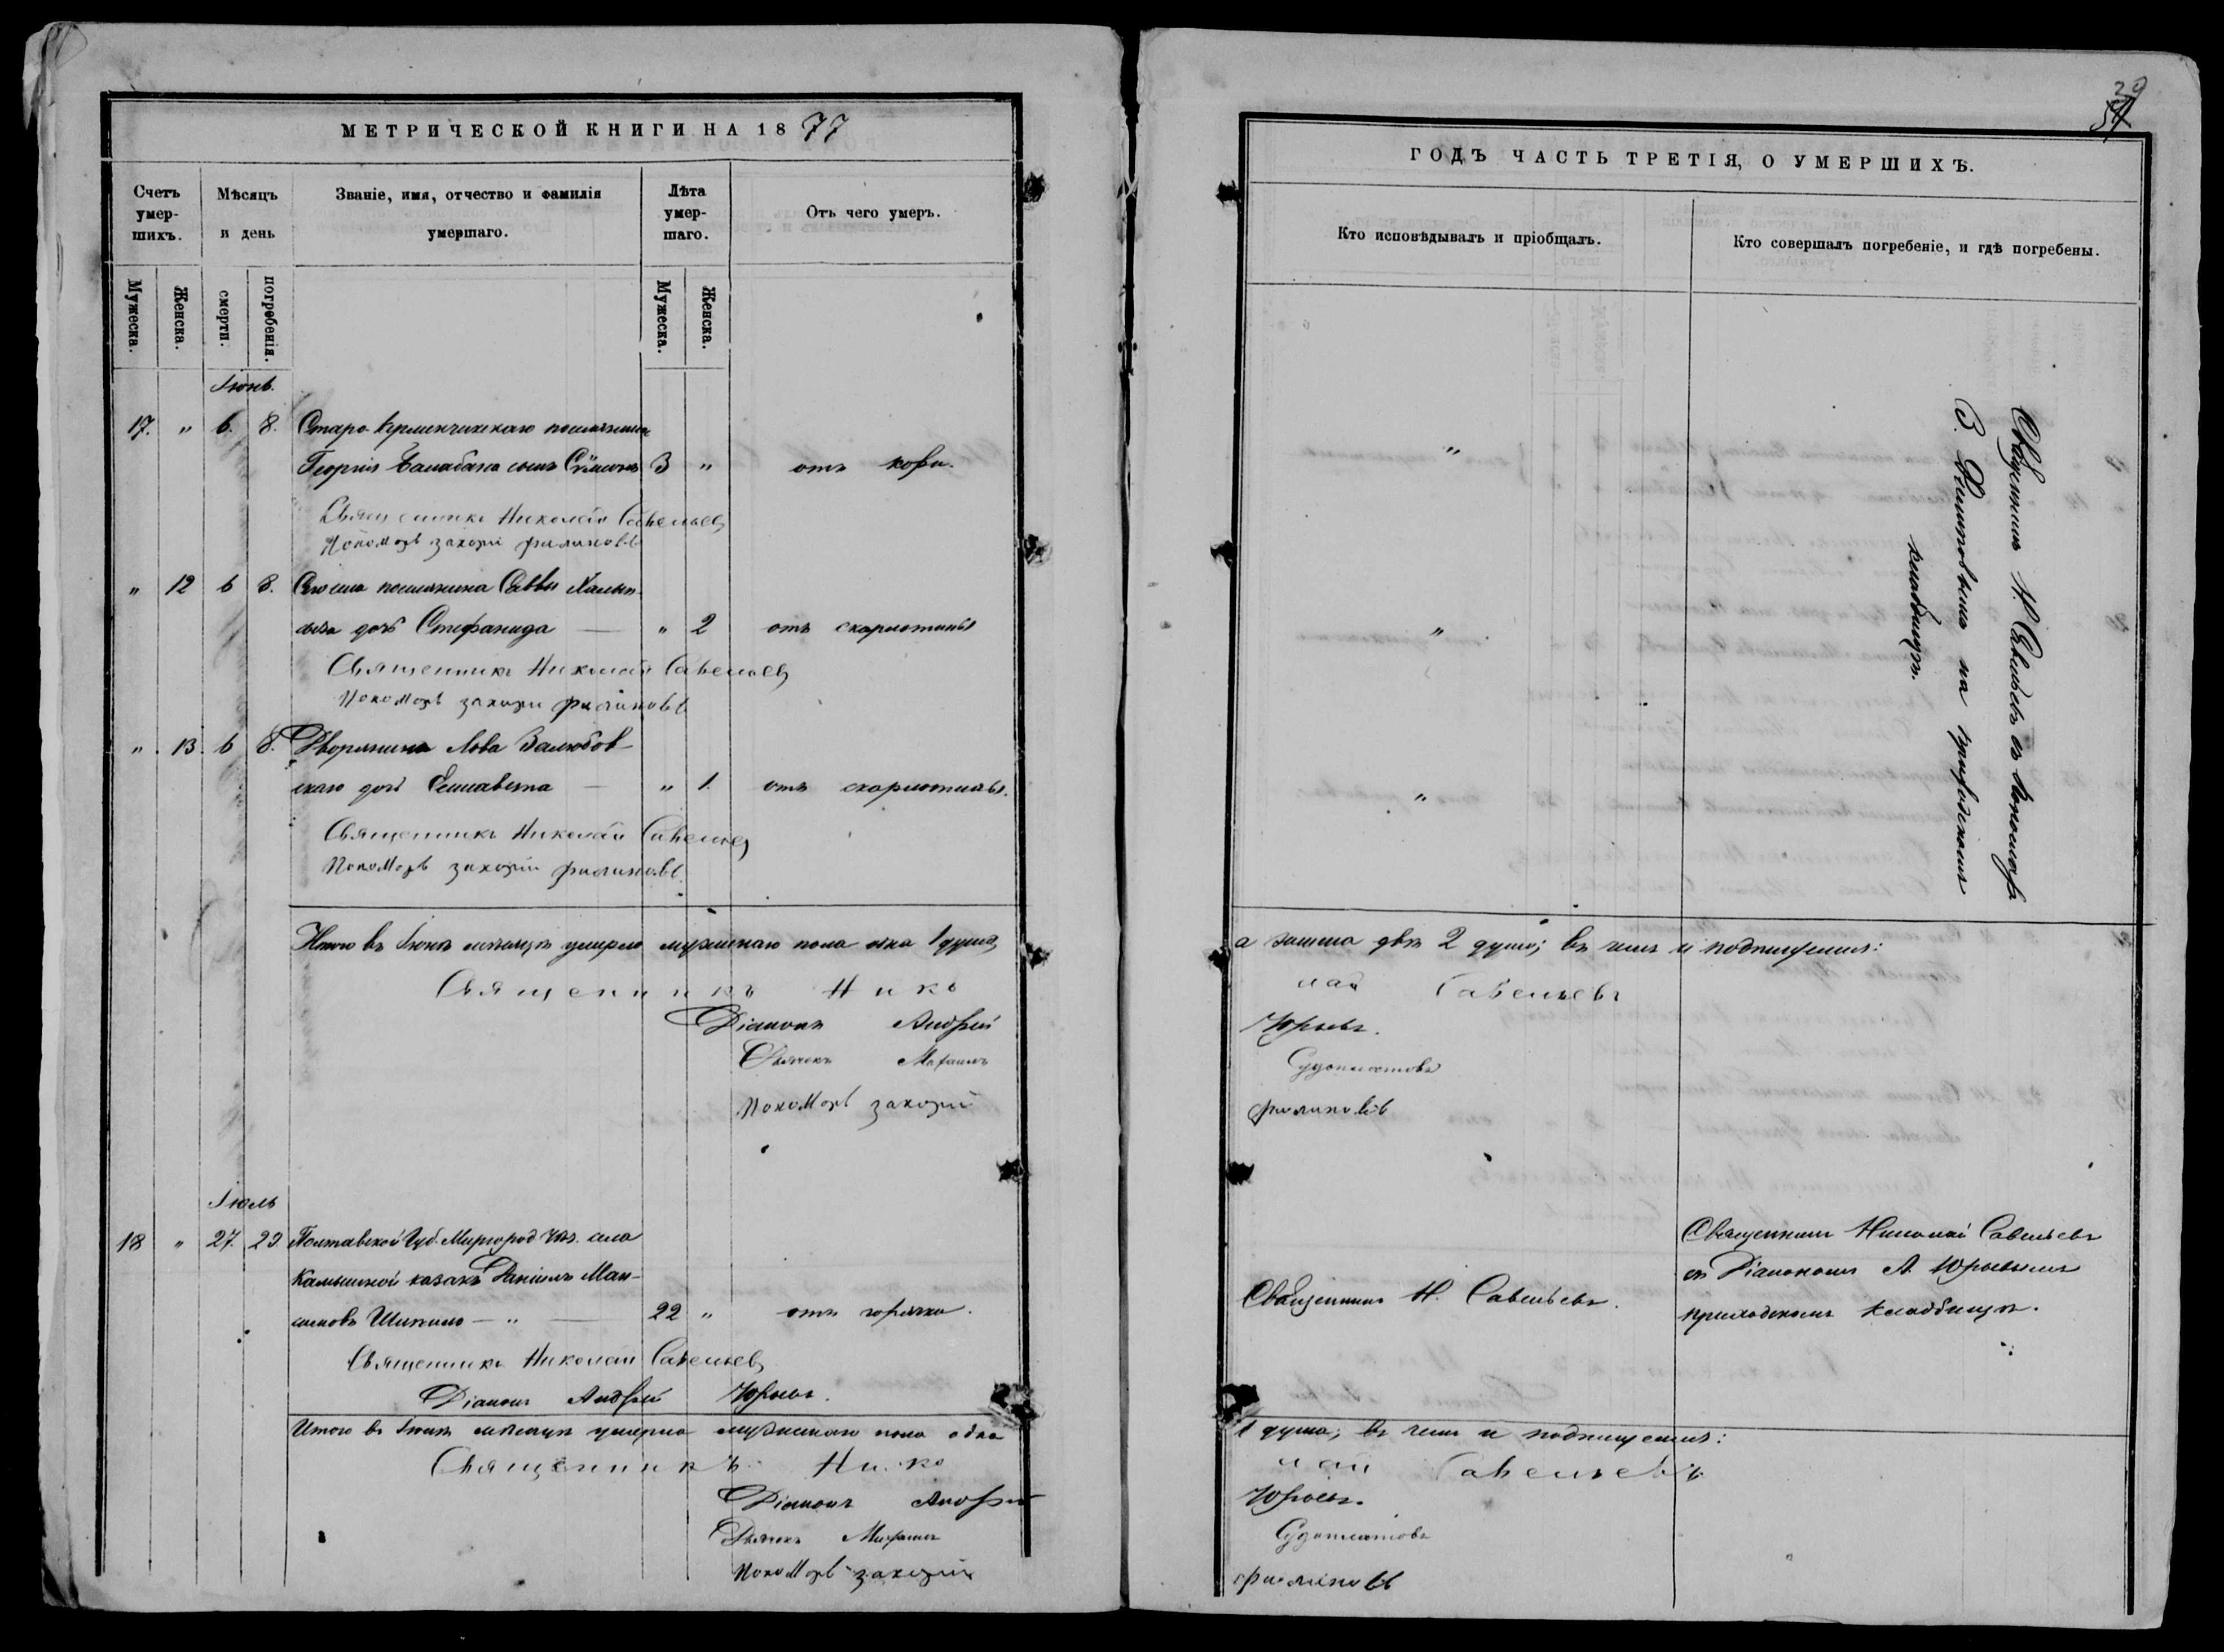 МЕТРИЧЕСКОЙ КНИГИ НА 1877
Счетъ умер-шихъ.
Мѣсяцъ и день
Званіе, имя, отчество и фамилія умершаго.
Лѣта умер-шаго.
Отъ чего умеръ.
Мужеска.
Женска.
смерти.
погребенія.
Мужеска.
Женска.
Іюнь.
17. " 6. 8. Старо-Крменчикскаго поселянина
Георгія Балабана сынъ Сѵмеонъ 3 " отъ кори.
Священникъ Николай Савельев
Пономарь Захарій Филиповъ
" 12 6 8. Сего села поселянина Саввы
дочь Стефанида — " 2 отъ скарлотины
Священникъ Николай Савельев
Пономарь Захарій Филиповъ
" 13. 6 8. Дворянина Льва Залюбов-
скаго дочь Елисавета — " 1. отъ скарлотины.
Священникъ Николай Савельев
Пономарь Захарій Филиповъ.
Итого въ Іюнѣ мѣсяцѣ умерло мужескаго пола 1 душа,
Священникъ Нико
Діаконъ Андрей
Дьячекъ Михаилъ
Пономарь Захарій
Іюль
18 " 27. 29. Полтавской Губ. Миргород. Уѣз. села
Камышной казакъ Даніилъ Ман-
22 " отъ горячки.
Священникъ Николай Савельев
Діаконъ Андрей Юрьевъ.
Итого въ Іюлѣ мѣсяцѣ умерло мужескаго пола одна
Священникъ Нико
Діаконъ Андрей
Дьячекъ Михаилъ
Пономарь Захарій
29
ГОДЪ ЧАСТЬ ТРЕТІЯ, О УМЕРШИХЪ.
Кто исповѣдывалъ и пріобщалъ.
Кто совершалъ погребеніе, и гдѣ погребены.
"
"
"
Священникъ Н. Савельевъ съ Пономаремъ
З. Филиповымъ на приходскомъ
кладбищѣ.
а женска двѣ 2 души; въ чемъ и подпишемся:
лай Савельевъ
Юрьевъ.
Филиповъ
Священникъ Н. Савельевъ.
Священникъ Николай Савельевъ
съ Діакономъ А. Юрьевымъ
приходскомъ кладбищѣ.
1 душа; въ чемъ и подпишемся:
лай Савельевъ
Юрьевъ.
Филиповъ